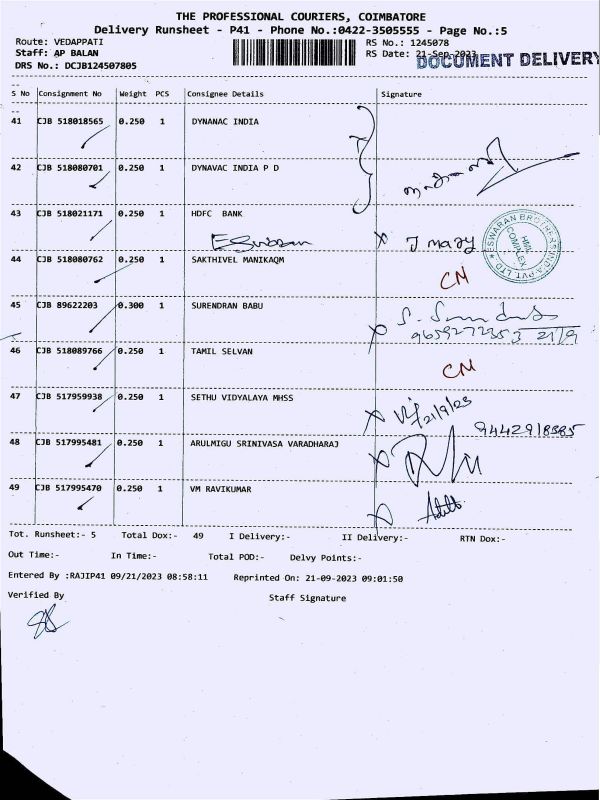 THE PROFESSIONAL COURIERS, COIMBATORE
Delivery Runsheet - P41 - Phone No.:0422-3505555 - Page No.:5
Route: VEDAPPATI
RS No.: 1245078
Staff: AP BALAN
RS Date: 21-Sep-2023
DOCUMENT DELIVERY
DRS No.: DCJB124507805
S No Consignment No Weight PCS Consignee Details Signature
41 CJB 518018565 0.250 1 DYNANAC INDIA
42 CJB 518080701 0.250 1 DYNAVAC INDIA P D
43 CJB 518021171 0.250 1 HDFC BANK
J mary
ESWARAN BROTHERS INDIA PVT LTD
HML COMPLEX
44 CJB 518080762 0.250 1 SAKTHIVEL MANIKAQM
CM
45 CJB 89622203 0.300 1 SURENDRAN BABU
21/9
46 CJB 518089766 0.250 1 TAMIL SELVAN
CM
47 CJB 517959938 0.250 1 SETHU VIDYALAYA MHSS
21/9/23
48 CJB 517995481 0.250 1 ARULMIGU SRINIVASA VARADHARAJ
49 CJB 517995470 0.250 1 VM RAVIKUMAR
Tot. Runsheet:- 5 Total Dox:- 49 I Delivery:- II Delivery:- RTN Dox:-
Out Time:- In Time:- Total POD:- Delvy Points:-
Entered By :RAJIP41 09/21/2023 08:58:11 Reprinted On: 21-09-2023 09:01:50
Verified By Staff Signature